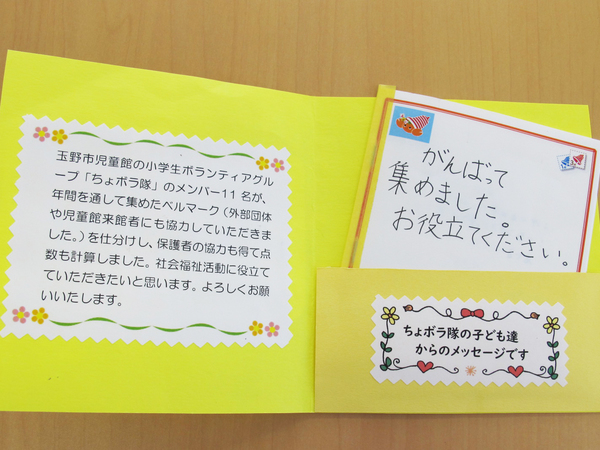 玉野市児童館の小学生ボランティアグル
ープ「ちょボラ隊」のメンバー11名が、
年間を通して集めたベルマーク（外部団体
や児童館来館者にも協力していただきま
した。）を仕分けし、保護者の協力も得て点
数も計算しました。社会福祉活動に役立て
ていただきたいと思います。よろしくお願
いいたします。
がんばって
集めました。
お役立てください。
ちょボラ隊の子ども達
からのメッセージです